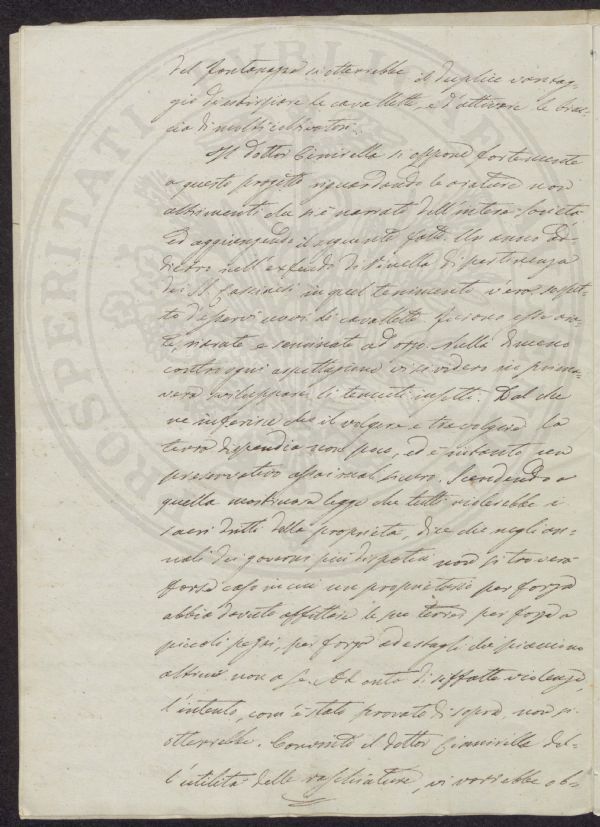 del fontanaro si otterrebbe il duplice vantag-
gio di distruggere le cavallette, e d'attivare le brac-
cia di molti coltivatori.
Il dottor Cinnirella si oppone fortemente
a questo progetto riguardando le arature non
altrimenti che si è narrato dell'intera società
ed aggiungendo il seguente fatto. Un anno ad-
dietro nell'exfeudo di Vinella di pertinenza
dei SS. in quel tenimento v'era sospet-
to di spervi uova di cavallette furono esse ara-
te, e seminate ad orzo. Nulla dimeno
contro ogni aspettazione vi si videro in prima-
vera sviluppare li temuti insetti. Dal che
ne inferisce che il volgere e travolgere la
terra dispendia non poco, ed è intanto un
preservativo assai mal sicuro. Scendendo a
quella mostruosa legge che tutti violerebbe i
sacri dritti della proprietà, dice che negli an-
nali dei governi più dispotici non si troverà
forse caso in cui un proprietario per forza
abbia dovuto affittare le sue terre, per forza a
piccoli pezzi, per forza ad estagli che piacciono
altrui non a se. Ad onta di siffatta violenza,
l'intento, com'è stato provato di sopra, non si
otterrebbe. Convinto il dottor Cinnirella del-
l'utilità delle raschiature, vi vorrebbe ob-
PROSPERITATI
PUBLICAE